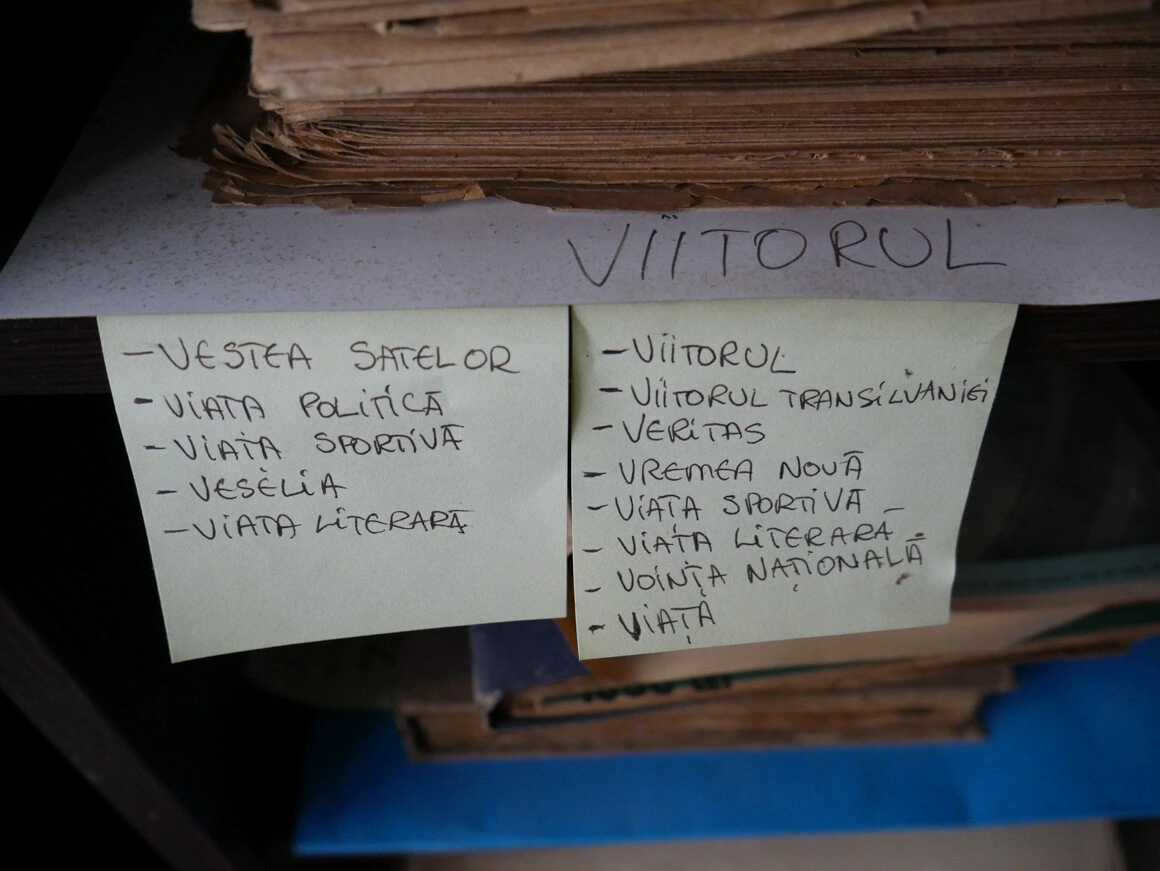 VIITORUL
- VESTEA SATELOR
- VIAȚA POLITICĂ
- VIAȚA SPORTIVĂ
- VESELIA
- VIAȚA LITERARĂ
- VIITORUL
- VIITORUL TRANSILVANIEI
- VERITAS
- VREMEA NOUĂ
- VIAȚA SPORTIVĂ
- VIAȚA LITERARĂ
- VOINȚA NAȚIONALĂ
- VIAȚA